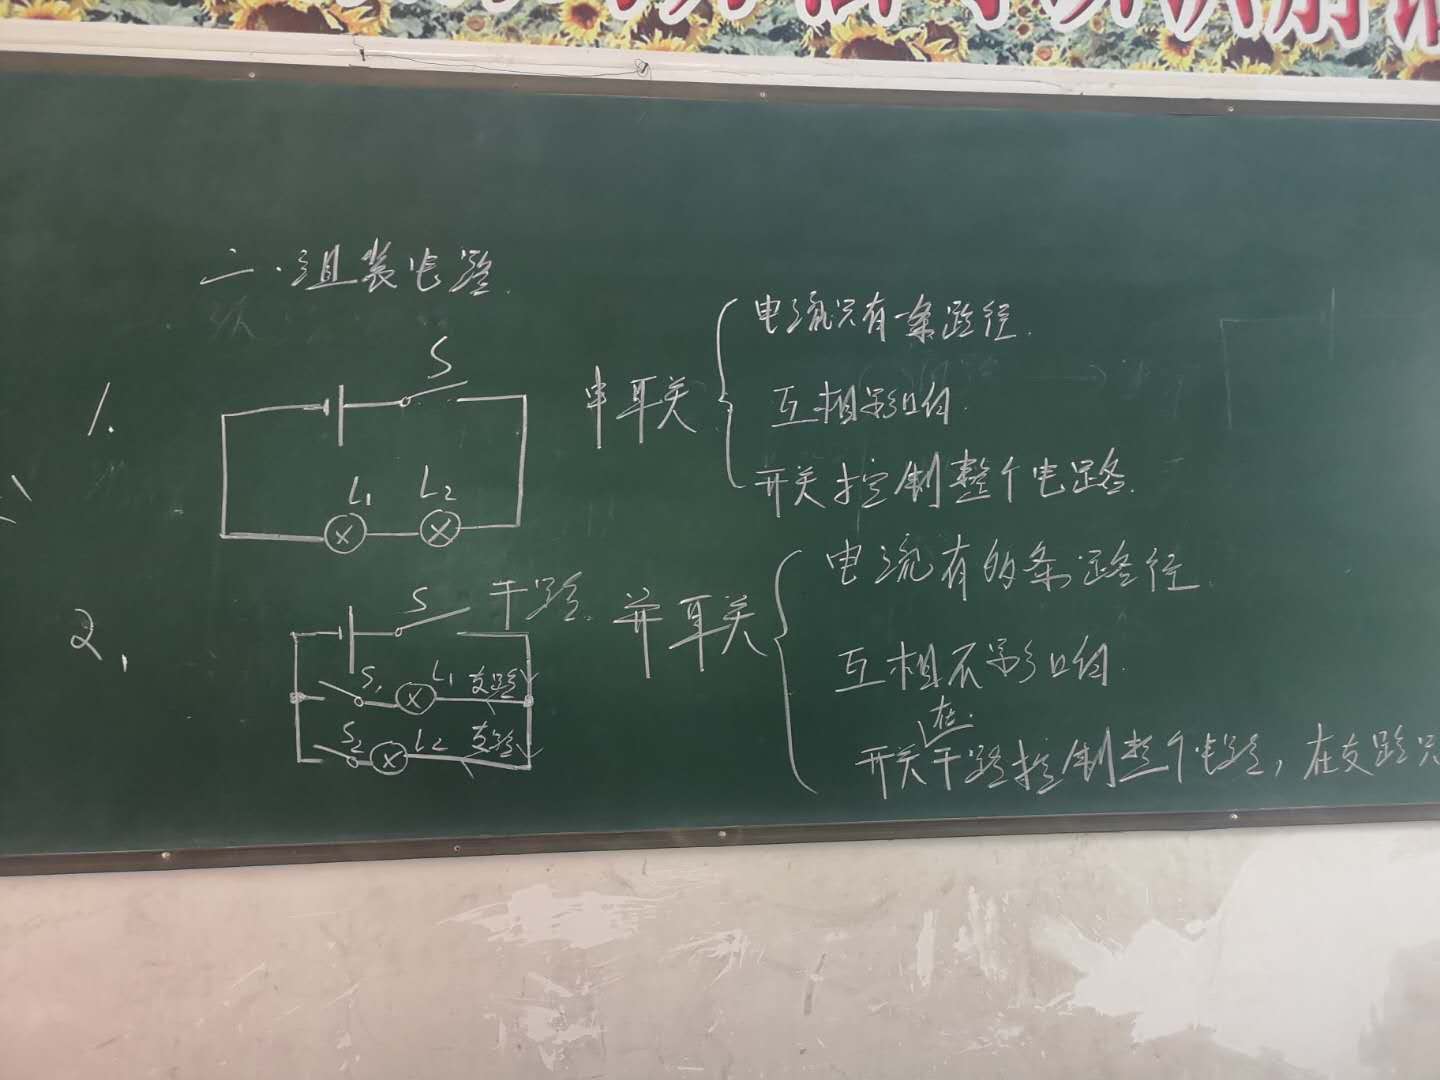 二.组装电路.
1.
S
L₁ L₂
串联
电流只有一条路径.
互相影响.
开关控制整个电路.
2.
S 干路.
S₁ L₁ 支路
S₂ L₂ 支路
并联
电流有多条路径.
互相不影响.
开关在干路控制整个电路，在支路只